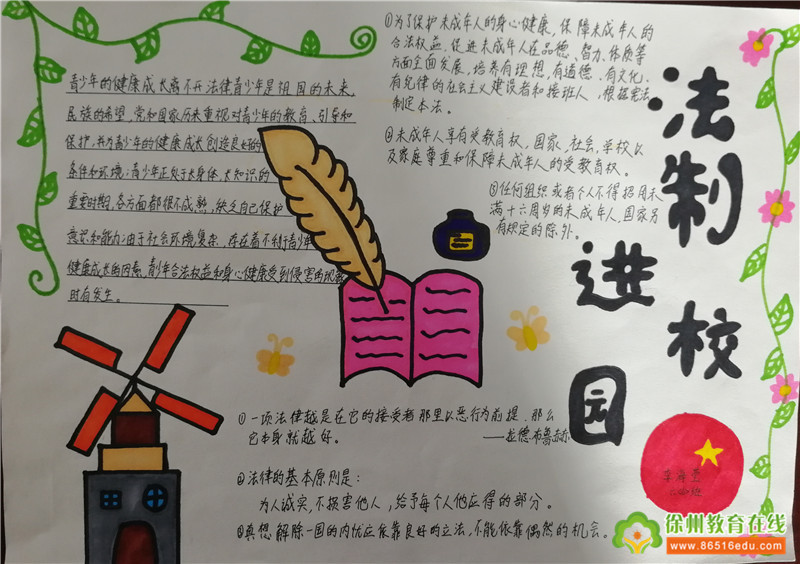 青少年的健康成长离不开法律青少年是祖国的未来,
民族的希望,党和国家历来重视对青少年的教育、引导和
保护,并为青少年的健康成长创造良好的
条件和环境;青少年正处于长身体,长知识的
重要时期,各方面都很不成熟,缺乏自己保护
意识和能力;由于社会环境复杂,存在着不利于青少年
健康成长的因素,青少年合法权益和身心健康受到侵害的现象
时有发生。
①为了保护未成年人的身心健康,保障未成年人的
合法权益,促进未成年人在品德、智力、体质等
方面全面发展,培养有理想、有道德、有文化、
有纪律的社会主义建设者和接班人,根据宪法
制定本法。
②未成年人享有受教育权,国家、社会、学校以
及家庭尊重和保障未成年人的受教育权。
③任何组织或者个人不得招用未
满十六周岁的未成年人,国家另
有规定的除外。
法制
进校
园
①一项法律越是在它的接受者那里以恶行为前提,那么
它本身就越好。
——拉德·布鲁赫
②法律的基本原则是:
为人诚实,不损害他人,给予每个人他应得的部分。
③真想解除一国的内忧应依靠良好的立法,不能依靠偶然的机会。
徐州教育在线
www.86516edu.com